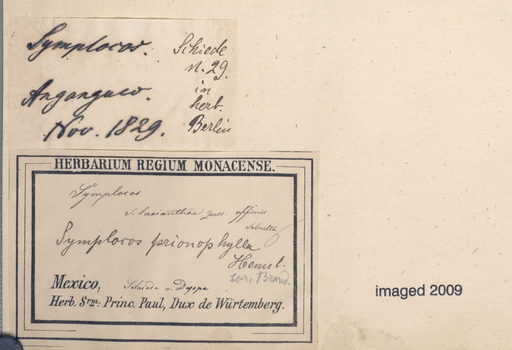 Symplocos.
Angangueo.
Nov. 1829.
Schiede
n. 29.
in
herb.
Berlin
HERBARIUM REGIUM MONACENSE.
Symplocos
S. affinis
Symplocos prionophylla
Hemsl.
Brand.
Mexico, Schiede
Herb. Srmi. Princ. Paul, Dux de Würtemberg.
imaged 2009